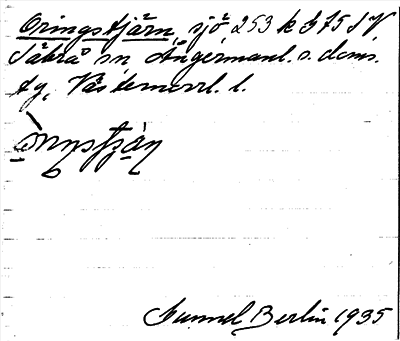 Oringstjärn, sjö 253 k 375 SV
Säbrå sn, Ångermanl. s. doms.
tg, Västernorrl. l.
Gunnel Berlin 1935